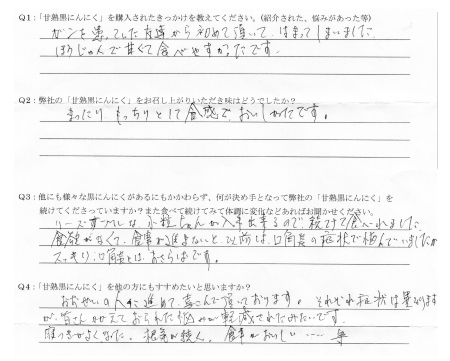 Q1：「甘熟黒にんにく」を購入されたきっかけを教えてください。(紹介された、悩みがあった等)
ガンを患ってした友達から初めて頂いて、はまってしまいました
ほうじゅんで甘くて食べやすかったです。
Q2：弊社の「甘熟黒にんにく」をお召し上がりいただき味はどうでしたか？
まったり もっちりとして食感で、おいしかったです。
Q3：他にも様々な黒にんにくがあるにもかかわらず、何が決め手となって弊社の「甘熟黒にんにく」を
続けてくださっていますか？また食べて続けてみて体調に変化などあればお聞かせください。
リーズナブルな小粒ちゃんが入手出来るので、続けて食べれました
食欲がなくて、食事が進まないと以前は、口角炎の症状で悩んでいましたが
スッキリ、口角炎とは、おさらばです。
Q4：「甘熟黒にんにく」を他の方にもすすめたいと思いますか？
おおぜいの人に進めて、喜こんで頂いております。それぞれ症状は異なります
が、皆さんかかえておられた悩みが軽減されたみたいです。
寝つきがよくなった。根気が続く、食事がおいしい……等